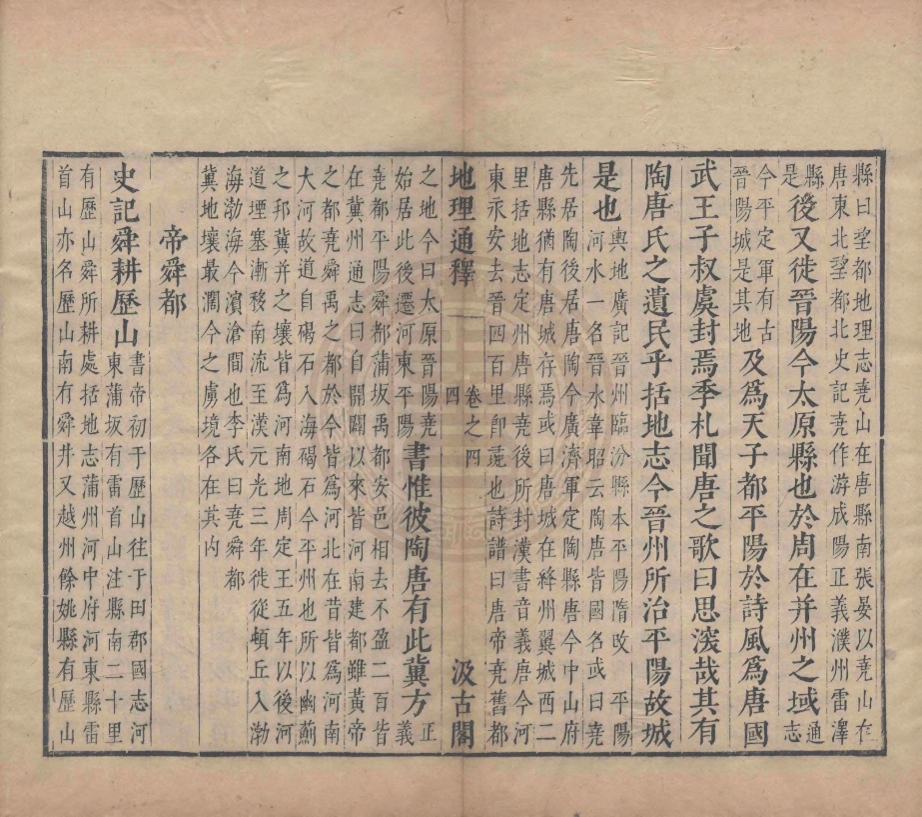 縣曰望都地理志堯山在唐縣南張晏以堯山在
唐東北望都北史記堯作游成陽正義濮州雷澤
縣是後又徙晉陽今太原縣也於周在并州之域通志
今平定軍有古晉陽城是其地及爲天子都平陽於詩風爲唐國
武王子叔虞封焉季札聞唐之歌曰思深哉其有
陶唐氏之遺民乎括地志今晉州所治平陽故城
是也輿地廣記晉州臨汾縣本平陽隋改平陽
河水一名晉水韋昭云陶唐皆國名或曰堯
先居陶後居唐陶今廣濟軍定陶縣唐今中山府
唐縣猶有唐城存焉或曰唐城在絳州翼城西二
里括地志定州唐縣堯後所封漢書音義唐今河
東永安去晉四百里卽彘也詩譜曰唐帝堯舊都
地理通釋 卷之四 四 汲古閣
之地今曰太原晉陽堯始居此後遷河東平陽書惟彼陶唐有此冀方正義
堯都平陽舜都蒲坂禹都安邑相去不盈二百皆
在冀州通志曰自開闢以來皆河南建都雖黃帝
之都堯舜禹之都於今皆爲河北在昔皆爲河南
大河故道自碣石入海碣石今平州也所以幽薊
之邦冀并之壤皆爲河南地周定王五年以後河
道堙塞漸移南流至漢元光三年徙從頓丘入渤
海渤海今濱滄間也李氏曰堯舜都
冀地壤最濶今之虜境各在其內
帝舜都
史記舜耕歷山書帝初于歷山往于田郡國志河
東蒲坂有雷首山注縣南二十里
有歷山舜所耕處括地志蒲州河中府河東縣雷
首山亦名歷山南有舜井又越州餘姚縣有歷山